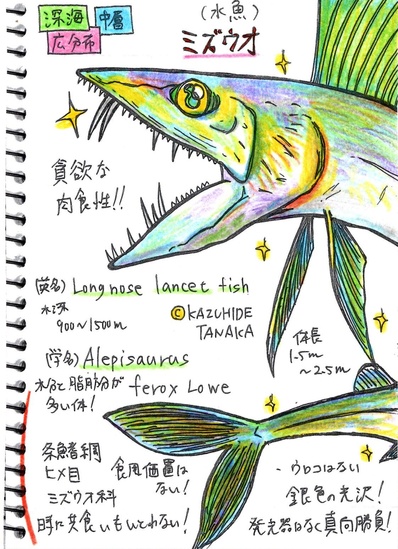 深海
中層
広分布
(水魚)
ミズウオ
貪欲な
肉食性!!
(英名) Longnose lancet fish
水深
900〜1500m
© KAZUHIDE
TANAKA
体長
1.5m
〜2.5m
(学名) Alepisaurus
ferox Lowe
水分と脂肪分が
多い体!
条鰭綱
ヒメ目
ミズウオ科
時に共食いもいとわない!
食用価値は
ない!
・ウロコはない
銀色の光沢!
発光器はなく真向勝負!